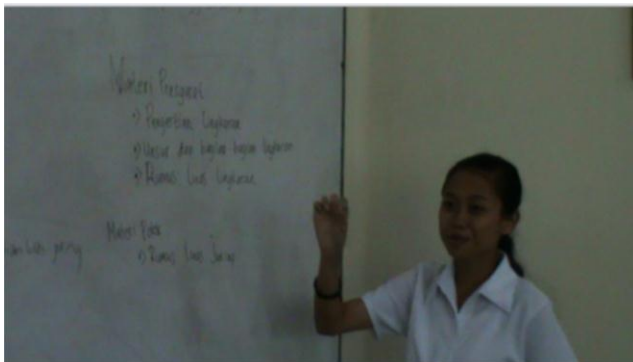 Materi Prasyarat
1) Pengertian lingkaran
2) Unsur dan bagian-bagian lingkaran
3) Rumus luas lingkaran
Materi
1) Rumus luas Juring
luas juring